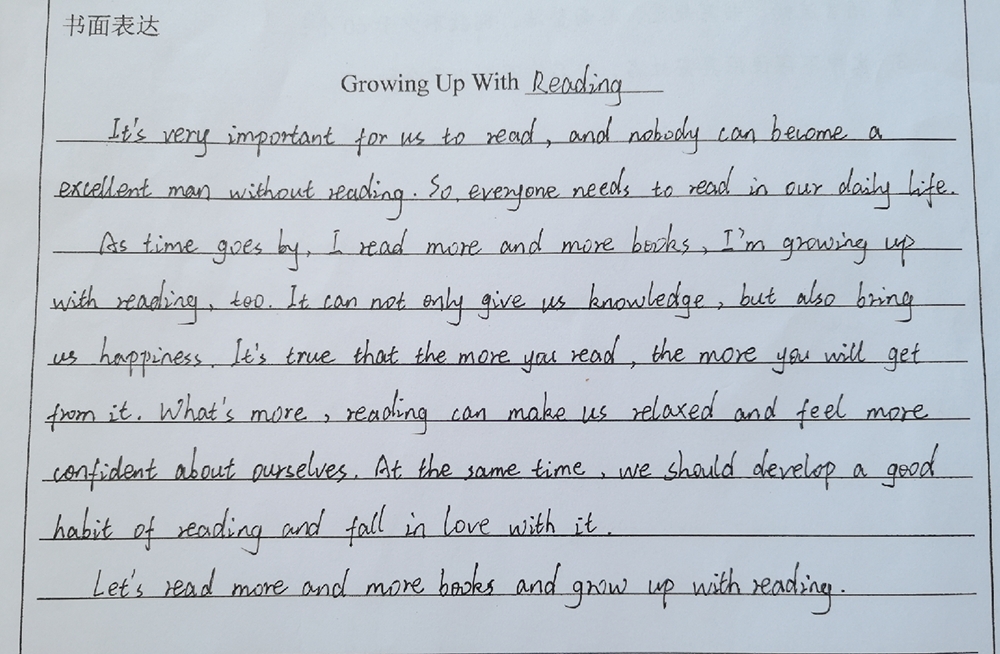 书面表达
Growing Up With Reading
It's very important for us to read, and nobody can become a
excellent man without reading. So, everyone needs to read in our daily life.
As time goes by, I read more and more books, I'm growing up
with reading, too. It can not only give us knowledge, but also bring
us happiness. It's true that the more you read, the more you will get
from it. What's more, reading can make us relaxed and feel more
confident about ourselves. At the same time, we should develop a good
habit of reading and fall in love with it.
Let's read more and more books and grow up with reading.